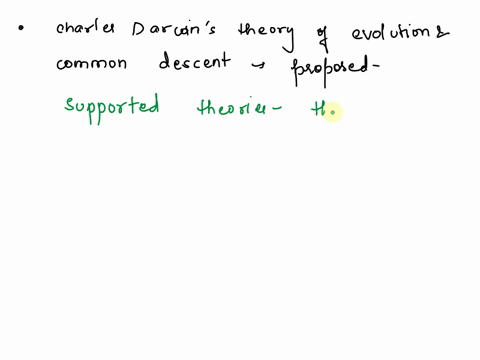 • Charles Darwin's theory of evolution &
common descent → proposed-
Supported theories- th